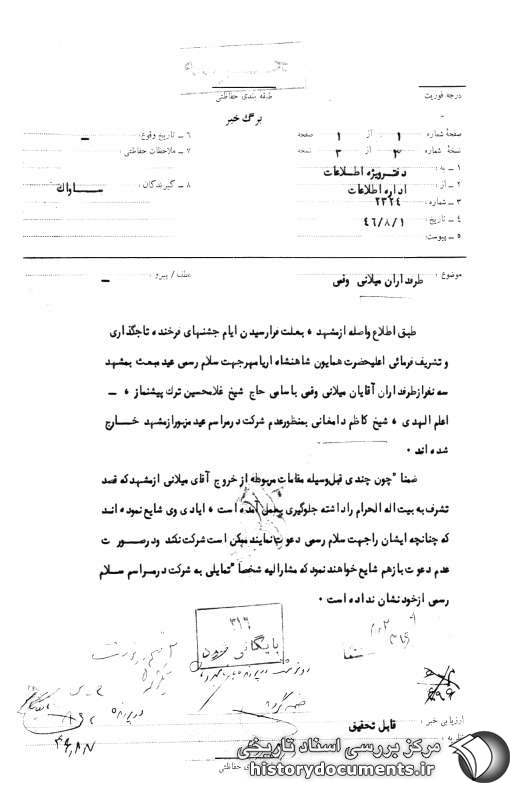 طبقه بندی حفاظتی
درجه فوریت
برگ خبر
صفحهٔ شماره ۱ از ۱ صفحه
۶ ـ تاریخ وقوع: ـ
نسخهٔ شماره ۳ از ۳ نسخه
۷ ـ ملاحظات حفاظتی:
۱ ـ به: دفتر ویژه اطلاعات
۲ ـ از: اداره اطلاعات
۸ ـ گیرندگان: ســاواک
۳ ـ شماره: ۲۳۲۴
۴ ـ تاریخ: ۴۶/۸/۱
۵ ـ پیوست:
موضوع: طرفداران میلانی وقمی
عطف / پیرو: ـ
طبق اطلاع واصله از مشهد ، بعلت فرارسیدن ایام جشنهای فرخنده تاجگذاری
و تشریف فرمائی اعلیحضرت همایون شاهنشاه اریامهر جهت سلام رسمی عید مبعث بمشهد
سه نفر از طرفداران آقایان میلانی وقمی باسامی حاج شیخ غلامحسین ترک پیشنماز ، ـ
اعلم الهدی ، شیخ کاظم دامغانی بمنظور عدم شرکت در مراسم عید مزبور از مشهد خــارج
شده اند .
ضمنا" چون چندی قبل وسیله مقامات مربوطه از خروج آقای میلانی از مشهد که قصد
تشرف به بیت اله الحرام را داشته جلوگیری بعمل آمده است ، ایادی وی شایع نموده انـد
که چنانچه ایشان را جهت سلام رسمی دعوت نمایند ممکن است شرکت نکند و در صــورت
عدم دعوت باز هم شایع خواهند نمود که مشارالیه شخصا" تمایلی به شرکت در مراسم ســلام
رسمی از خود نشان نداده است .
۳۱۶
بایگانی شود
ارزیابی خبر: قابل تحقیق
مرکز بررسی اسناد تاریخی
historydocuments.ir